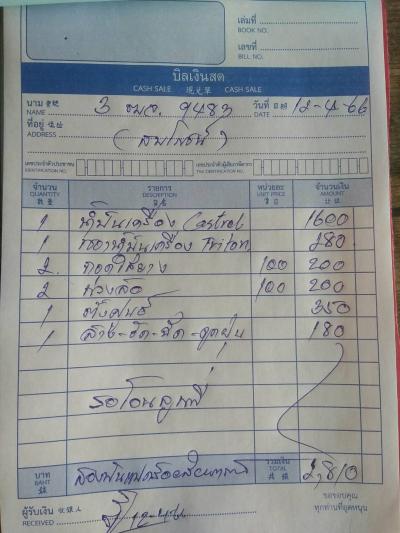 เล่มที่
BOOK NO.
เลขที่
BILL NO.
บิลเงินสด
CASH SALE 現兌單 CASH SALE
นาม NAME 3 ขมจ. 9483 วันที่ DATE 12-4-66
ที่อยู่ ADDRESS
เลขประจำตัวประชาชน IDENTIFICATION NO. เลขประจำตัวผู้เสียภาษีอากร TAX IDENTIFICATION NO.
จำนวน รายการ หน่วยละ จำนวนเงิน
QUANTITY DESCRIPTION UNIT PRICE AMOUNT
1 น้ำมันเครื่อง Castrol 1600
1 กรองน้ำมันเครื่อง Triton 280
2 ถอดใส่ยาง 100 200
2 ถ่วงล้อ 100 200
1 ตั้งศูนย์ 350
1 ล้าง-อัด-ฉีด-ดูดฝุ่น 180
รอโอนลูกพี่
บาท BAHT สองพันแปดร้อยสิบบาท รวมเงิน TOTAL 2,810
ผู้รับเงิน RECEIVED 12-4-66
ขอขอบคุณ
ทุกท่านที่อุดหนุน